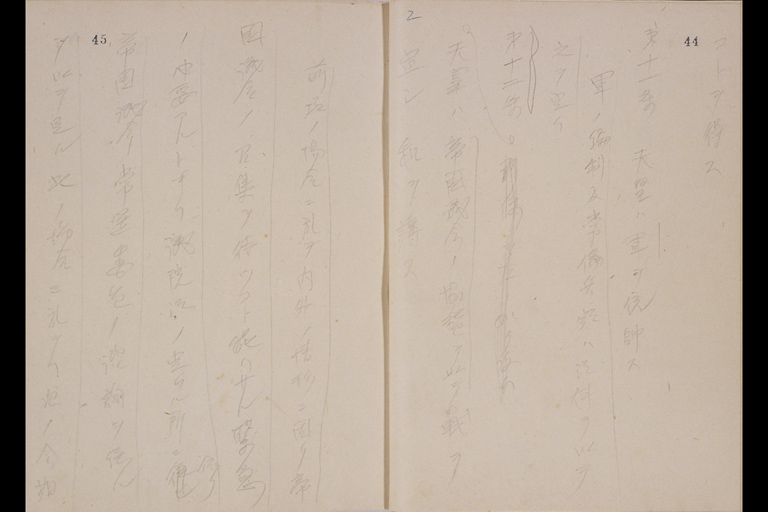 44
コトヲ得ス
第十一条 天皇ハ軍ヲ統帥ス
軍ノ編制及常備兵額ハ法律ヲ以テ
之ヲ定ム
第十三条
天皇ハ帝国議会ノ協賛ヲ以テ戦ヲ
宣シ和ヲ講ス
2
前項ノ場合ニ於テ内外ノ情形ニ因リ帝
国議会ノ召集ヲ待ツコト能ハサル緊急
ノ必要アルトキハ議院法ノ定ムル所ニ依リ
45
帝国議会常置委員ノ諮詢ヲ経ル
ヲ以テ足ル此ノ場合ニ於テハ次ノ会期